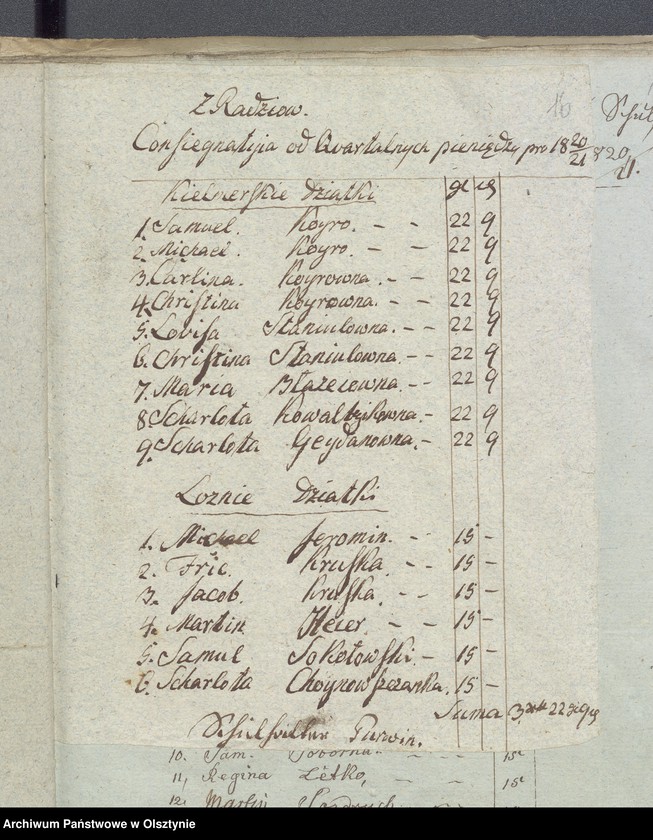 16
Z Radziow.
Schul
Consiegnatyia od Kwartalnych pieniędzy pro 1820/21
820/21.
Kielnerskie Dziatki gl q
1. Samuel. Koyro. - - 22 9
2. Michael. Koyro. - - 22 9
3. Carlina. Koyrowna. - - 22 9
4. Christina Koyrowna. - - 22 9
5. Lovisa Staniulowna. - - 22 9
6. Christina Staniulowna. - - 22 9
7. Maria Błazecewna. - - 22 9
8 Scharlota Kowaltzikowna. - 22 9
9. Scharlota Geydanowna. - 22 9
Loznie Dziatki
1. Michael Jeromin. - - 15 -
2. Fric. Kruska. - 15 -
3. Jacob. Kruska. - 15 -
4. Martin Heier. - - 15 -
5. Samul Sokołowski. - 15 -
6. Scharlota Choynowszczanka. 15 -
Suma 3 22 9
Schulhalter Purwin.
10. Sam. Soborna. - - - 15
11, Regina Letko, - - 15
12, Martin
Archiwum Państwowe w Olsztynie